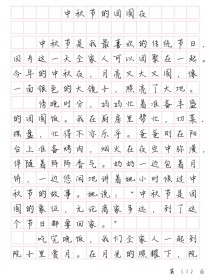 中秋节的团圆夜
中秋节是我最喜欢的传统节日，
因为这一天全家人可以团聚在一起。
今年的中秋夜，月亮又大又圆，像
一面银色的大镜子，照亮了大地。
傍晚时分，妈妈忙着准备丰盛
的团圆饭。我在厨房里帮忙，切菜、
摆盘，忙得不亦乐乎。爸爸则在阳
台上准备烤肉，烟火在夜空中弥漫，
伴随着阵阵香气。奶奶一边包着月
饼，一边悠闲地讲着她小时候过中
秋节的故事。她说：“中秋节是团
圆的象征，无论离家多远，到了这
个节日都要回家。”
吃完晚饭，我们全家人一起到
院子里赏月。在月光的照耀下，院
第 1 / 2 页